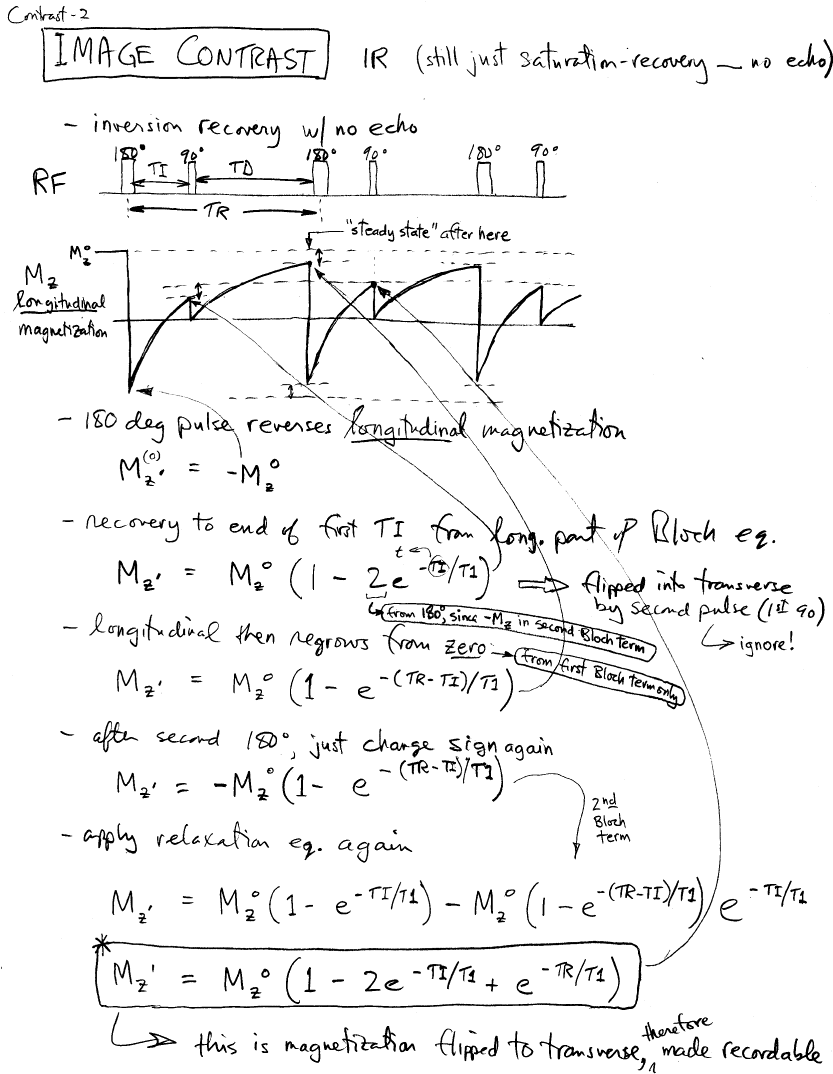 Contrast-2
IMAGE CONTRAST IR (still just saturation-recovery — no echo)
- inversion recovery w/ no echo
180° 90° 180° 90° 180° 90°
TI TD
RF
TR
"steady state" after here
M_z^0
M_z
longitudinal
magnetization
- 180 deg pulse reverses longitudinal magnetization
M_z'^(0) = -M_z^0
- recovery to end of first TI from long. part of Bloch eq.
t
M_z' = M_z^0 (1 - 2e^-TI/T1) ⇒ flipped into transverse
by second pulse (1st 90)
from 180°, since -M_z in second Bloch term
↳ ignore!
- longitudinal then regrows from zero → from first Bloch term only
M_z' = M_z^0 (1 - e^-(TR-TI)/T1)
- after second 180°, just change sign again
M_z' = -M_z^0 (1 - e^-(TR-TI)/T1)
2nd
Bloch
term
- apply relaxation eq. again
M_z' = M_z^0 (1 - e^-TI/T1) - M_z^0 (1 - e^-(TR-TI)/T1) e^-TI/T1
* M_z' = M_z^0 (1 - 2e^-TI/T1 + e^-TR/T1)
↳ this is magnetization flipped to transverse, therefore made recordable